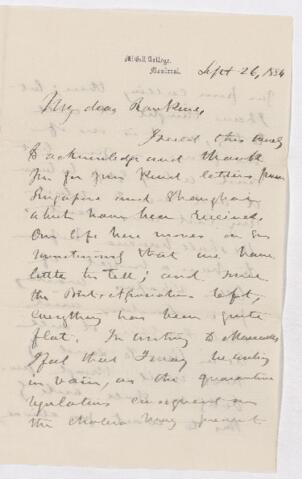 McGill College,
Montreal.
Sept 26, 1884
My dear Rankine,
I send this merely
to acknowledge and thank
you for your kind letters from
Singapore and Shanghai
which have been received.
Our life here moves on so
that we have
little to tell; and since
the Brit. Association left,
everything has been quite
flat. In writing to
I feel that I may be writing
in vain, as the quarantine
regulations consequent on
the cholera may prevent